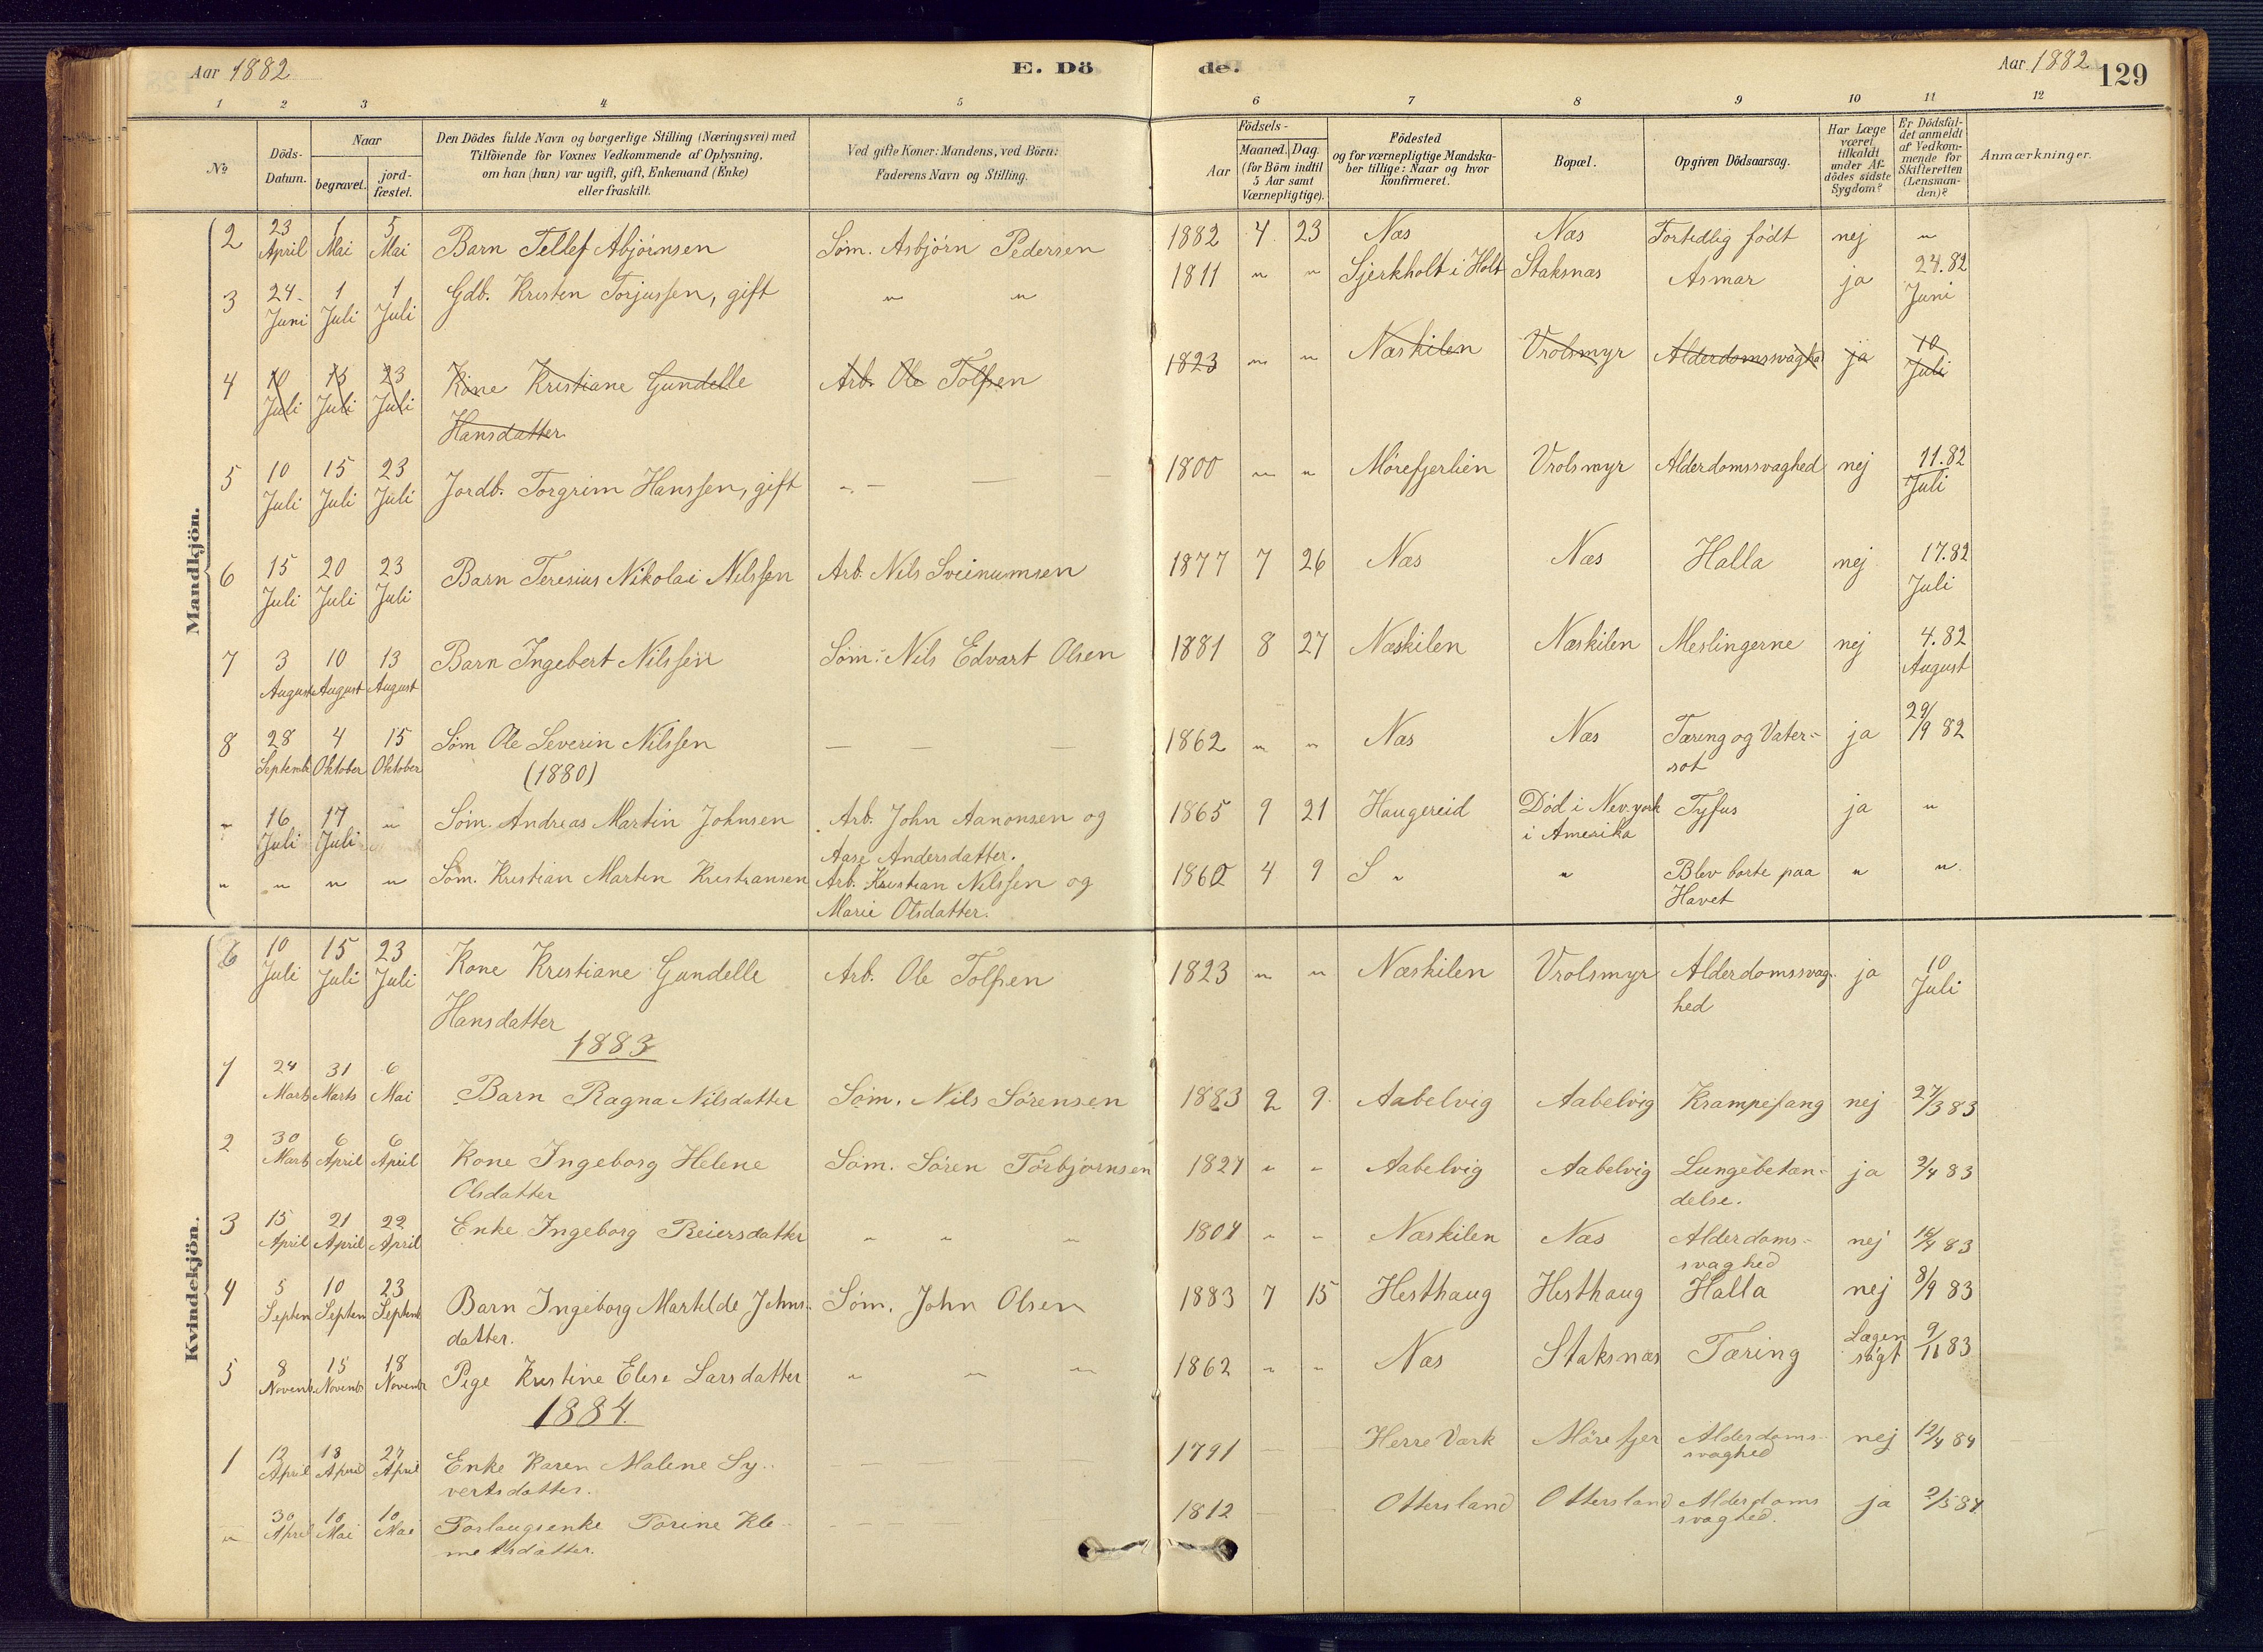 Aar 1882 E. Dö de. Aar 1882 129
1 2 3 4 5 6 7 8 9 10 11 12
No
Döds-Datum.
Naar
begravet.
jord-fæstet.
Den Dödes fulde Navn og borgerlige Stilling (Næringsvei) med
Tilföiende for Voxnes Vedkommende af Oplysning,
om han (hun) var ugift, gift, Enkemand (Enke)
eller fraskilt.
Ved gifte Koner: Mandens, ved Börn:
Faderens Navn og Stilling.
Födsels-
Aar
Maaned. Dag
(for Börn indtil
5 Aar samt
Værnepligtige).
Födested
og for værnepligtige Mandska-
ber tillige: Naar og hvor
konfirmeret.
Bopæl.
Opgiven Dödsaarsag.
Har Læge
været
tilkaldt
under Af-
dödes sidste
Sygdom?
Er Dödsfal-
det anmeldt
af Vedkom-
mende for
Skifteretten
(Lensman-
den)?
Anmærkninger.
Mandkjön.
2 23 April 1 Mai 5 Mai Barn Tellef Abjörnsen Söm. Asbjörn Pedersen 1882 4 23 Næs Næs Fortidlig født nej "
3 24 Juni 1 Juli 1 Juli Gdb. Kristen Torjussen, gift " " 1811 " " Sjerkholt i Holt Staksnæs Asmar ja 24.82 Juni
4 10 Juli 15 Juli 23 Juli Kone Kristiane Gundelle Arb. Ole Tolfsen 1823 " " Næskilen Vrolsmyr Alderdomssvaghed ja 10 Juli
Hansdatter
5 10 Juli 15 Juli 23 Juli Jordb. Torgrim Hanssen, gift " — — — 1800 " " Mörefjerlien Vrolsmyr Alderdomssvaghed nej 11.82 Juli
6 15 Juli 20 Juli 23 Juli Barn Teresius Nikolai Nilssen Arb. Nils Sveinumsen 1877 7 26 Næs Næs Halla nej 17.82 Juli
7 3 August 10 August 13 August Barn Ingebert Nilssen Söm. Nils Edvart Olsen 1881 8 27 Næskilen Næskilen Meslingerne nej 4.82 August
8 28 Septemb 4 Oktober 15 Oktober Söm Ole Severin Nilssen — — — 1862 " " Næs Næs Tæring og Vater- ja 29/9 82
(1880) sot
" 16 Juli 17 Juli " Söm. Andreas Martin Johnsen Arb. John Aanonsen og 1865 9 21 Haugereid Död i Nev.york Tyfus ja "
Aase Andersdatter. i Amerika
" " " " Söm. Kristian Martin Kristiansen Arb. Kristian Nilssen og 1860 4 9 S " " Blev borte paa " "
Marie Olsdatter. Havet
Kvindekjön.
6 10 Juli 15 Juli 23 Juli Kone Kristiane Gundelle Arb. Ole Tolfsen 1823 " " Næskilen Vrolsmyr Alderdomssvag- ja 10 Juli
Hansdatter hed
1883
1 24 Marts 31 Marts 6 Mai Barn Ragna Nilsdatter Söm. Nils Sörensen 1883 2 9 Aabelvig Aabelvig Krampefang nej 27/3 83
2 30 Marts 6 April 6 April Kone Ingeborg Helene Söm. Sören Törbjörnsen 1827 " " Aabelvig Aabelvig Lungebetæn- ja 2/4 83
Olsdatter delse.
3 15 April 21 April 22 April Enke Ingeborg Reiersdatter " " " 1804 " " Næskilen Næs Alderdoms- nej 16/4 83
svaghed
4 5 Septen 10 Septen 23 Septenb Barn Ingeborg Martilde Johns- Söm. John Olsen 1883 7 15 Hesthaug Hesthaug Halla nej 8/9 83
datter.
5 8 Novenb. 15 Novenb 18 Novenb Pige Kristine Elese Larsdatter " " " 1862 " " Næs Staksnæs Tæring Lægen sögt 9/11 83
1884.
1 12 April 18 April 27 April Enke Karen Malene Sy- — — — 1791 — — Herre Værk Mörefjer Alderdoms- nej 12/4 84
vertsdatter. svaghed
" 30 April 10 Mai 10 Mai Forlaugsenke Torine Kle- — — — 1812 — — Ottersland Ottersland Alderdoms ja 2/5 84.
metsdatter. svaghed.